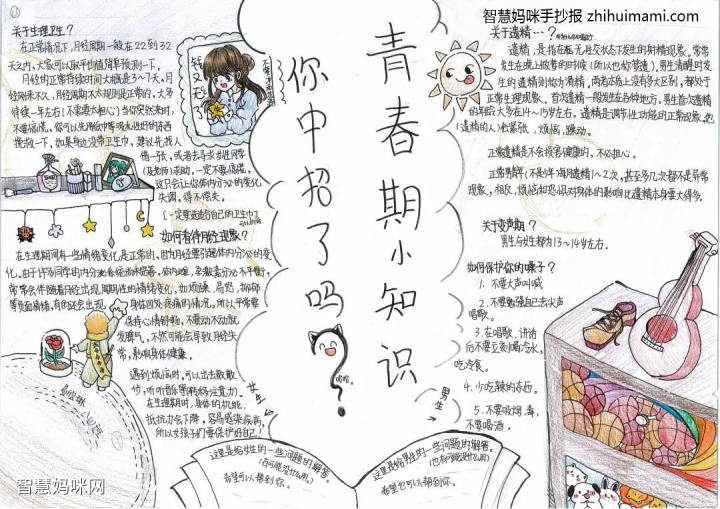 智慧妈咪手抄报 zhihuimami.com
青春期小知识
你中招了吗?
关于生理卫生?
在正常情况下,月经周期一般在22到32
天之内,大家可以取平均值简单预测一下。
月经的正常持续时间大概是3~7天。月
经刚来不久,月经周期不太规则是正常的,大多
持续一年左右(不需要太担心)当你突然来时,
不要慌张,你可以先用纸巾等吸水性好的东西
借一张,或者去寻求女性同学
(及老师)求助,一定不要慌张,
这只会让你体内分泌的变化
失调,得不偿失。
[一定要选适合自己的卫生巾了
如何看待月经现象?
在生理期间有一些情绪变化是正常的,因为月经要引起体内分泌的变
常常会伴随着月经出现周期性的情绪变化,如烦躁、易怒、抑郁
等负面情绪,有的还会出现
身体四处疼痛的情况。所以平常要
保持心情舒畅,不要动不动就
发脾气,不然可能会导致月经失
常,影响身体健康。
遇到烦恼时,可以出去散散
步,听听音乐等转移注意力。
在生理期时,身体的抗
抵抗力会下降,容易感染疾病,
所以女孩子们要保护好自己!
女生
哈哈。
这里是给女生的一些问题的解答。
希望可以帮到你。
关于遗精…?
遗精,是指在无性交状态下发生的射精现象。常常
发生在晚上做梦的时候(所以也称梦遗),男生清醒时发
生的遗精则称为滑精,两者本质上没有多大区别,都处于
正常生理现象。首次遗精一般发生在各种地方,男生首次遗精
的年龄大多在14~15岁左右。遗精是调节性功能的正常现象,也
(遗精的人)也紧张,烦恼,躁动。
正常遗精是不会损害健康的,不必担心。
正常男解(不是)每海月遗精1~2次,甚至多几次都不是异常
现象,相反,烦恼和恐惧对身体的影响比遗精本身要大得多。
关于变声期?
男生与女生都为13~14岁左右。
如何保护你的嗓子?
1.不要大声叫喊
2.不要勉强自己去尖声
唱歌。
3.在唱歌、讲话
后不要立刻喝冷水,
吃冷食。
4.少吃辣的东西。
5.不要吸烟毒,
不要喝酒。
男生
这里是给男生的一些问题的解答。
希望也可以帮到你。
智慧妈咪网